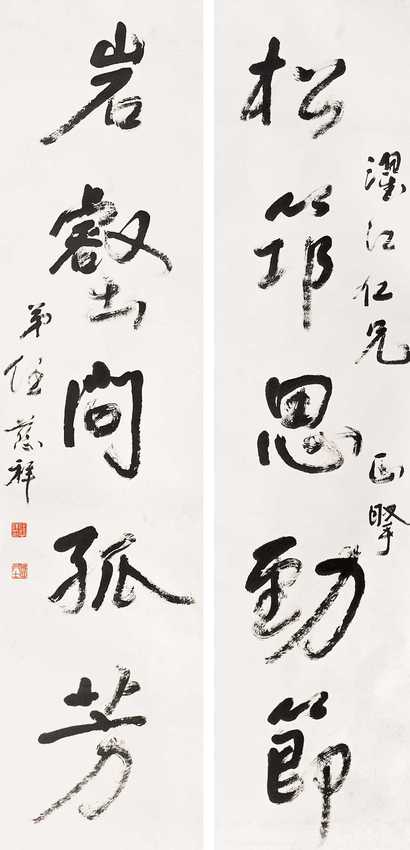 濯江仁兄 正掔
松筇思勁節
岩壑問孤芳
弟任慈祥